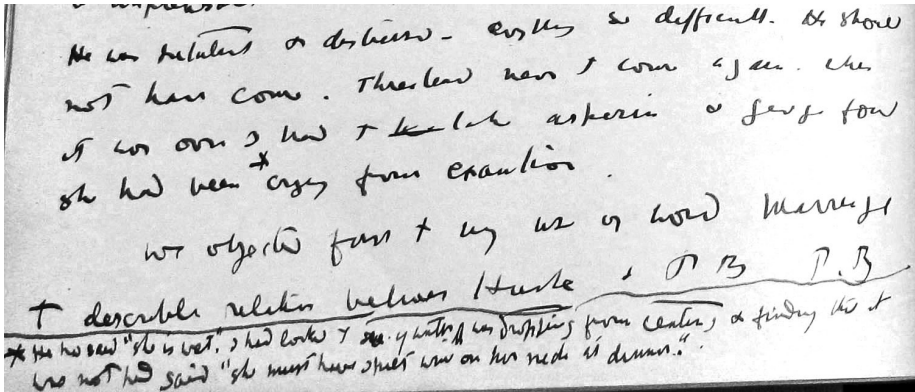 He was petulant & distressed - everything so difficult. He should
not have come. Threatened never to come again. When
it was over I had to take aspirin & George found
she had been * crying from exhaustion.
We objected first to my use of word Marriage
to describe relation between Huxle & P B P.B
* He had said "she is wet." I had looked to see if water was dropping from ceiling, & finding that it
was not had said "she must have spilt wine on her neck at dinner."